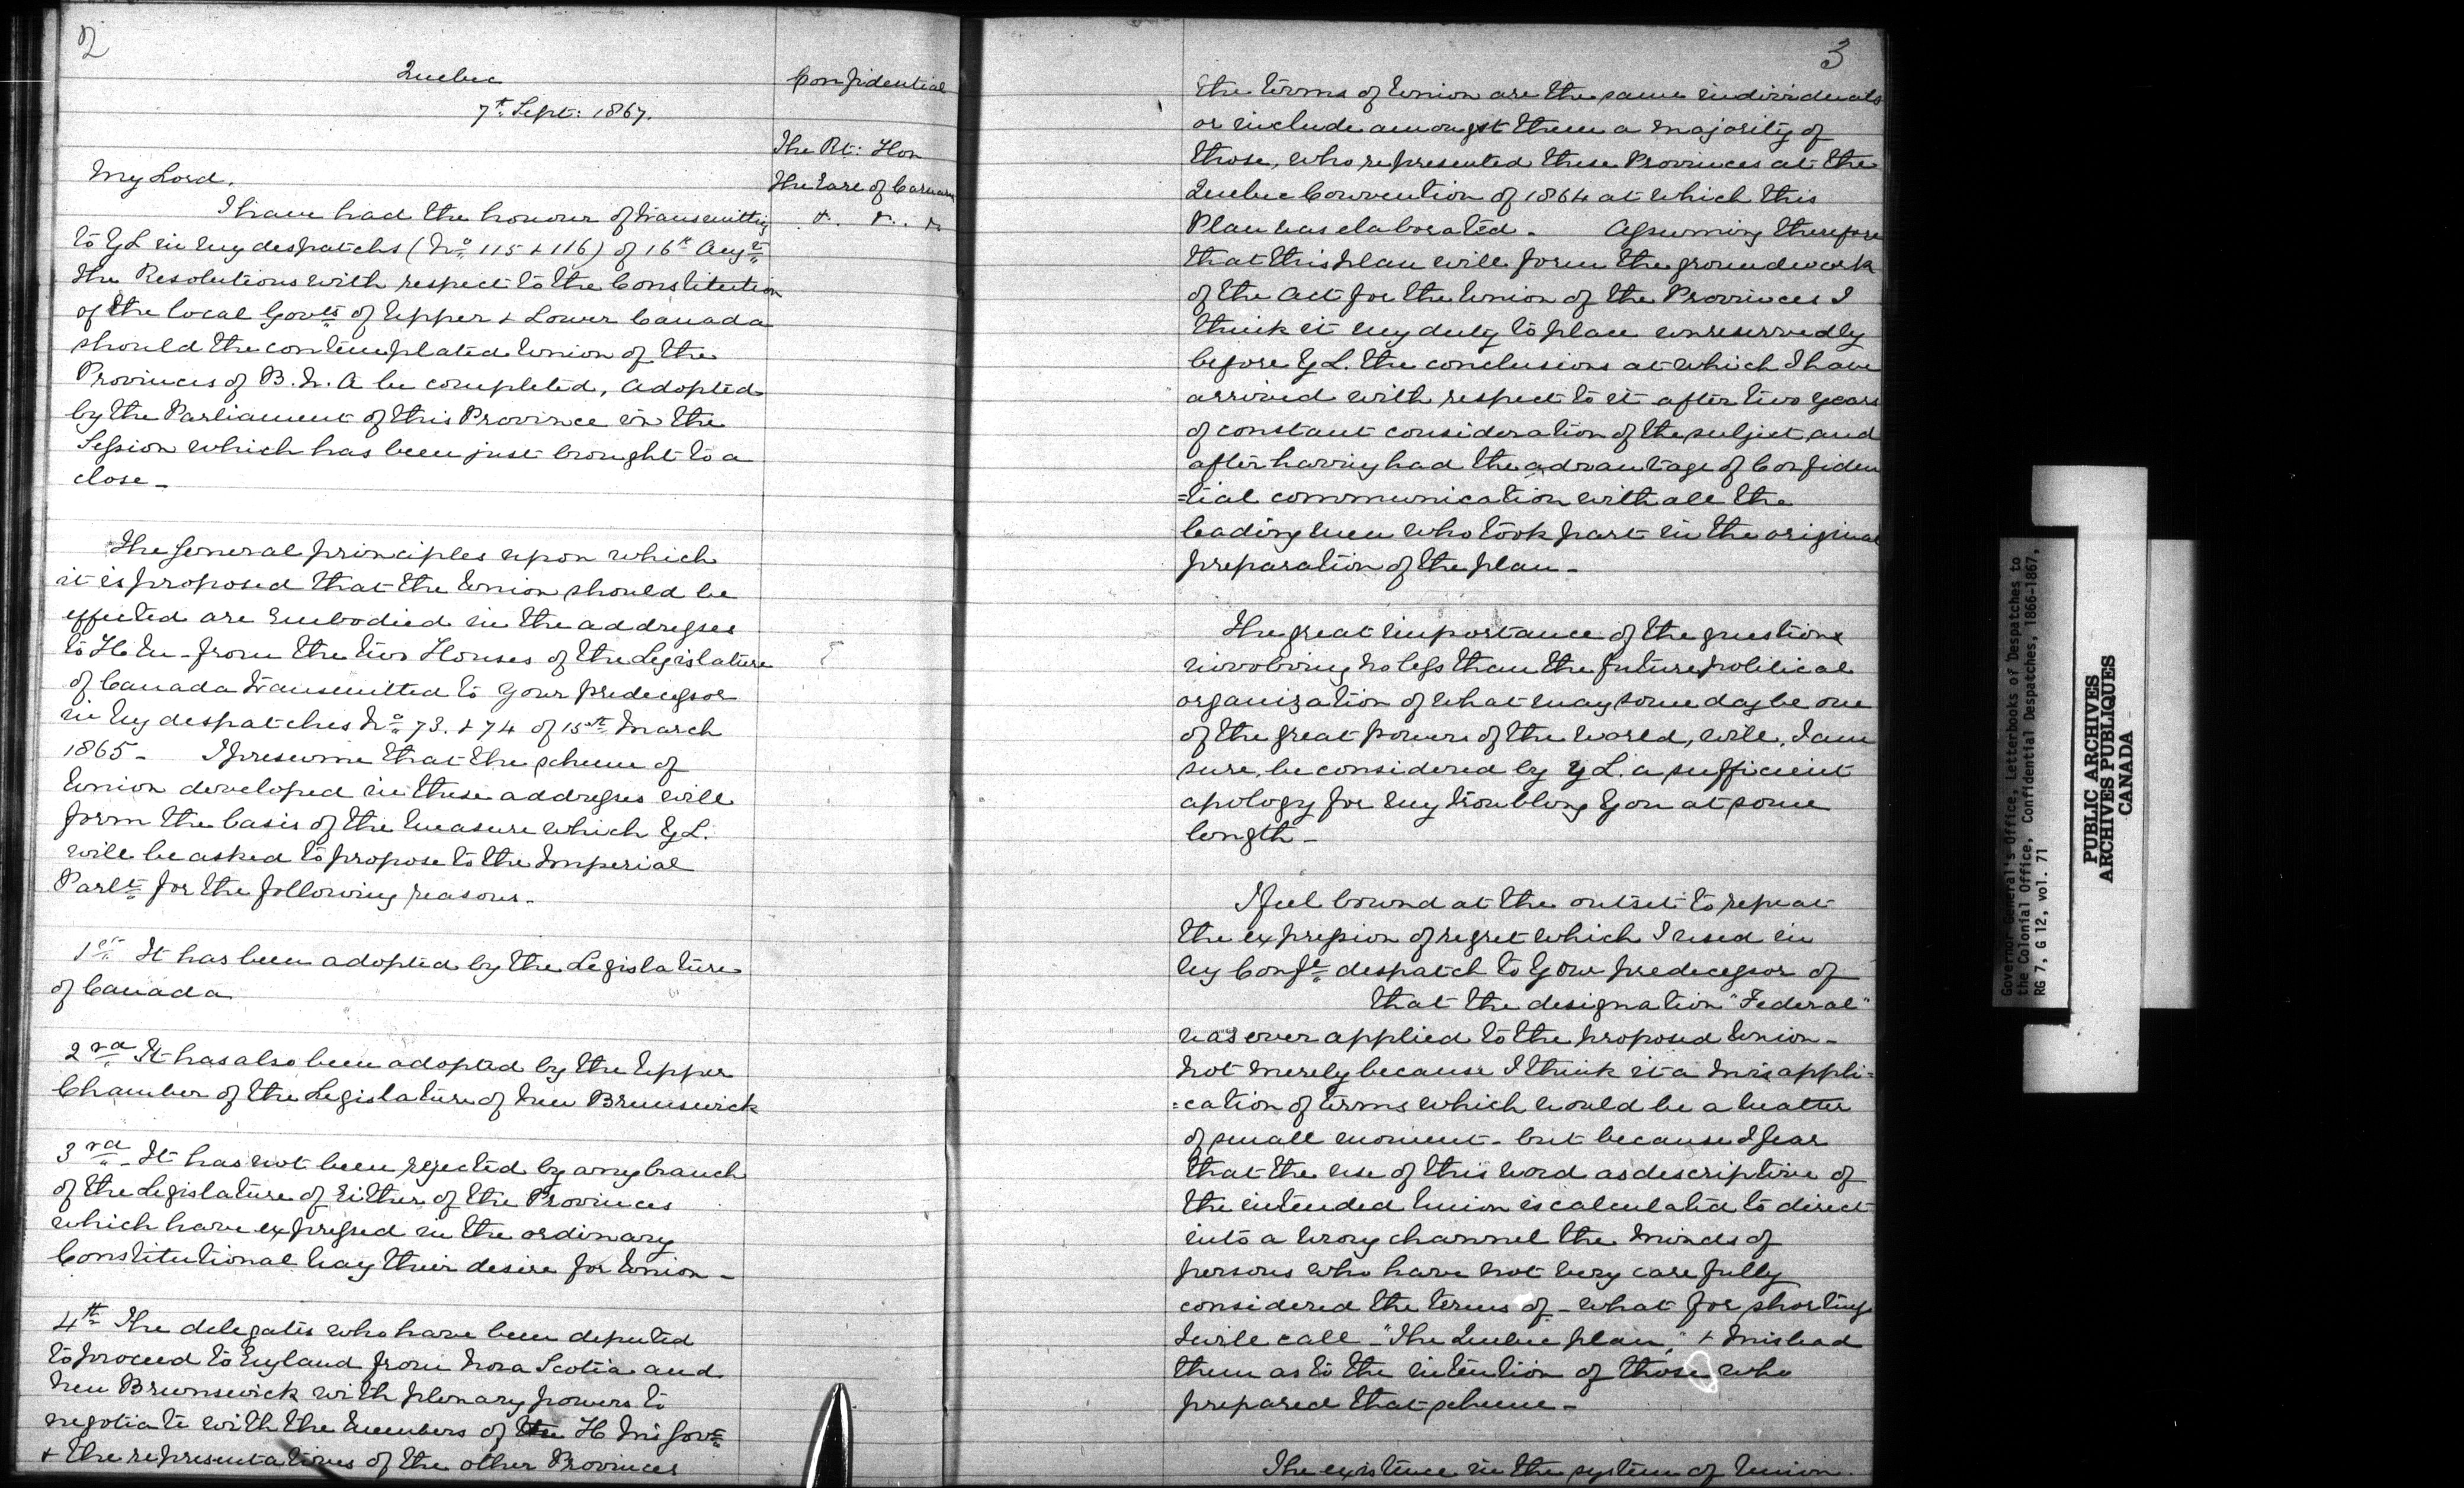 2
Quebec
7th Sept: 1867.
Confidential
The Rt: Hon
The Earl of Carnarvon
&. &. &
My Lord,
I have had the honour of transmitting
to YL in my despatchs (No 115 & 116) of 16th Augt
the Resolutions with respect to the Constitution
of the local Govts of Upper & Lower Canada
should the contemplated Union of the
Provinces of B. N. A be completed, adopted
by the Parliament of this Province in the
Session which has been just brought to a
close -
The General principles upon which
it is proposed that the Union should be
effected are embodied in the addresses
to H M - from the two Houses of the Legislature
of Canada transmitted to your predecessor
in my despatches No 73. & 74 of 15th March
1865 - I presume that the scheme of
Union developed in these addresses will
form the basis of the measure which YL.
will be asked to propose to the Imperial
Parlt for the following reasons -
1st It has been adopted by the Legislature
of Canada
2nd It has also been adopted by the Upper
Chamber of the Legislature of New Brunswick
3rd - It has not been rejected by any branch
of the Legislature of either of the Provinces
which have expressed in the ordinary
Constitutional way their desire for Union -
4th The delegates who have been deputed
to proceed to England from Nova Scotia and
New Brunswick with plenary powers to
negotiate with the members of the H Ms Govt
& the representatives of the other Provinces
3
the terms of Union are the same individuals
or include amongst them a majority of
those, who represented these Provinces at the
Quebec Convention of 1864 at which this
Plan was elaborated - Assuming therefore
that this plan will form the groundwork
of the Act for the Union of the Provinces I
think it my duty to place unreservedly
before YL. the conclusions at which I have
arrived with respect to it after two years
of constant consideration of the subject, and
after having had the advantage of Confiden
=tial communication with all the
leading men who took part in the original
preparation of the plan -
The great importance of the question
involving no less than the future political
organization of what may some day be one
of the great powers of the world, will, I am
sure, be considered by YL. a sufficient
apology for my troubling you at some
length -
I feel bound at the outset to repeat
the expression of regret which I used in
my Confl despatch to Your predecessor of
that the designation "Federal"
was ever applied to the proposed Union -
not merely because I think it a misappli=
=cation of terms which would be a matter
of small moment - but because I fear
that the use of this word as descriptive of
the intended Union is calculated to direct
into a wrong channel the minds of
persons who have not very carefully
considered the terms of - what for shortness
I will call - "The Quebec plan," & mislead
them as to the intention of those who
prepared that scheme -
The existence in the system of Union
Governor General's Office, Letterbooks of Despatches to
the Colonial Office, Confidential Despatches, 1866-1867,
RG 7, G 12, vol. 71
PUBLIC ARCHIVES
ARCHIVES PUBLIQUES
CANADA